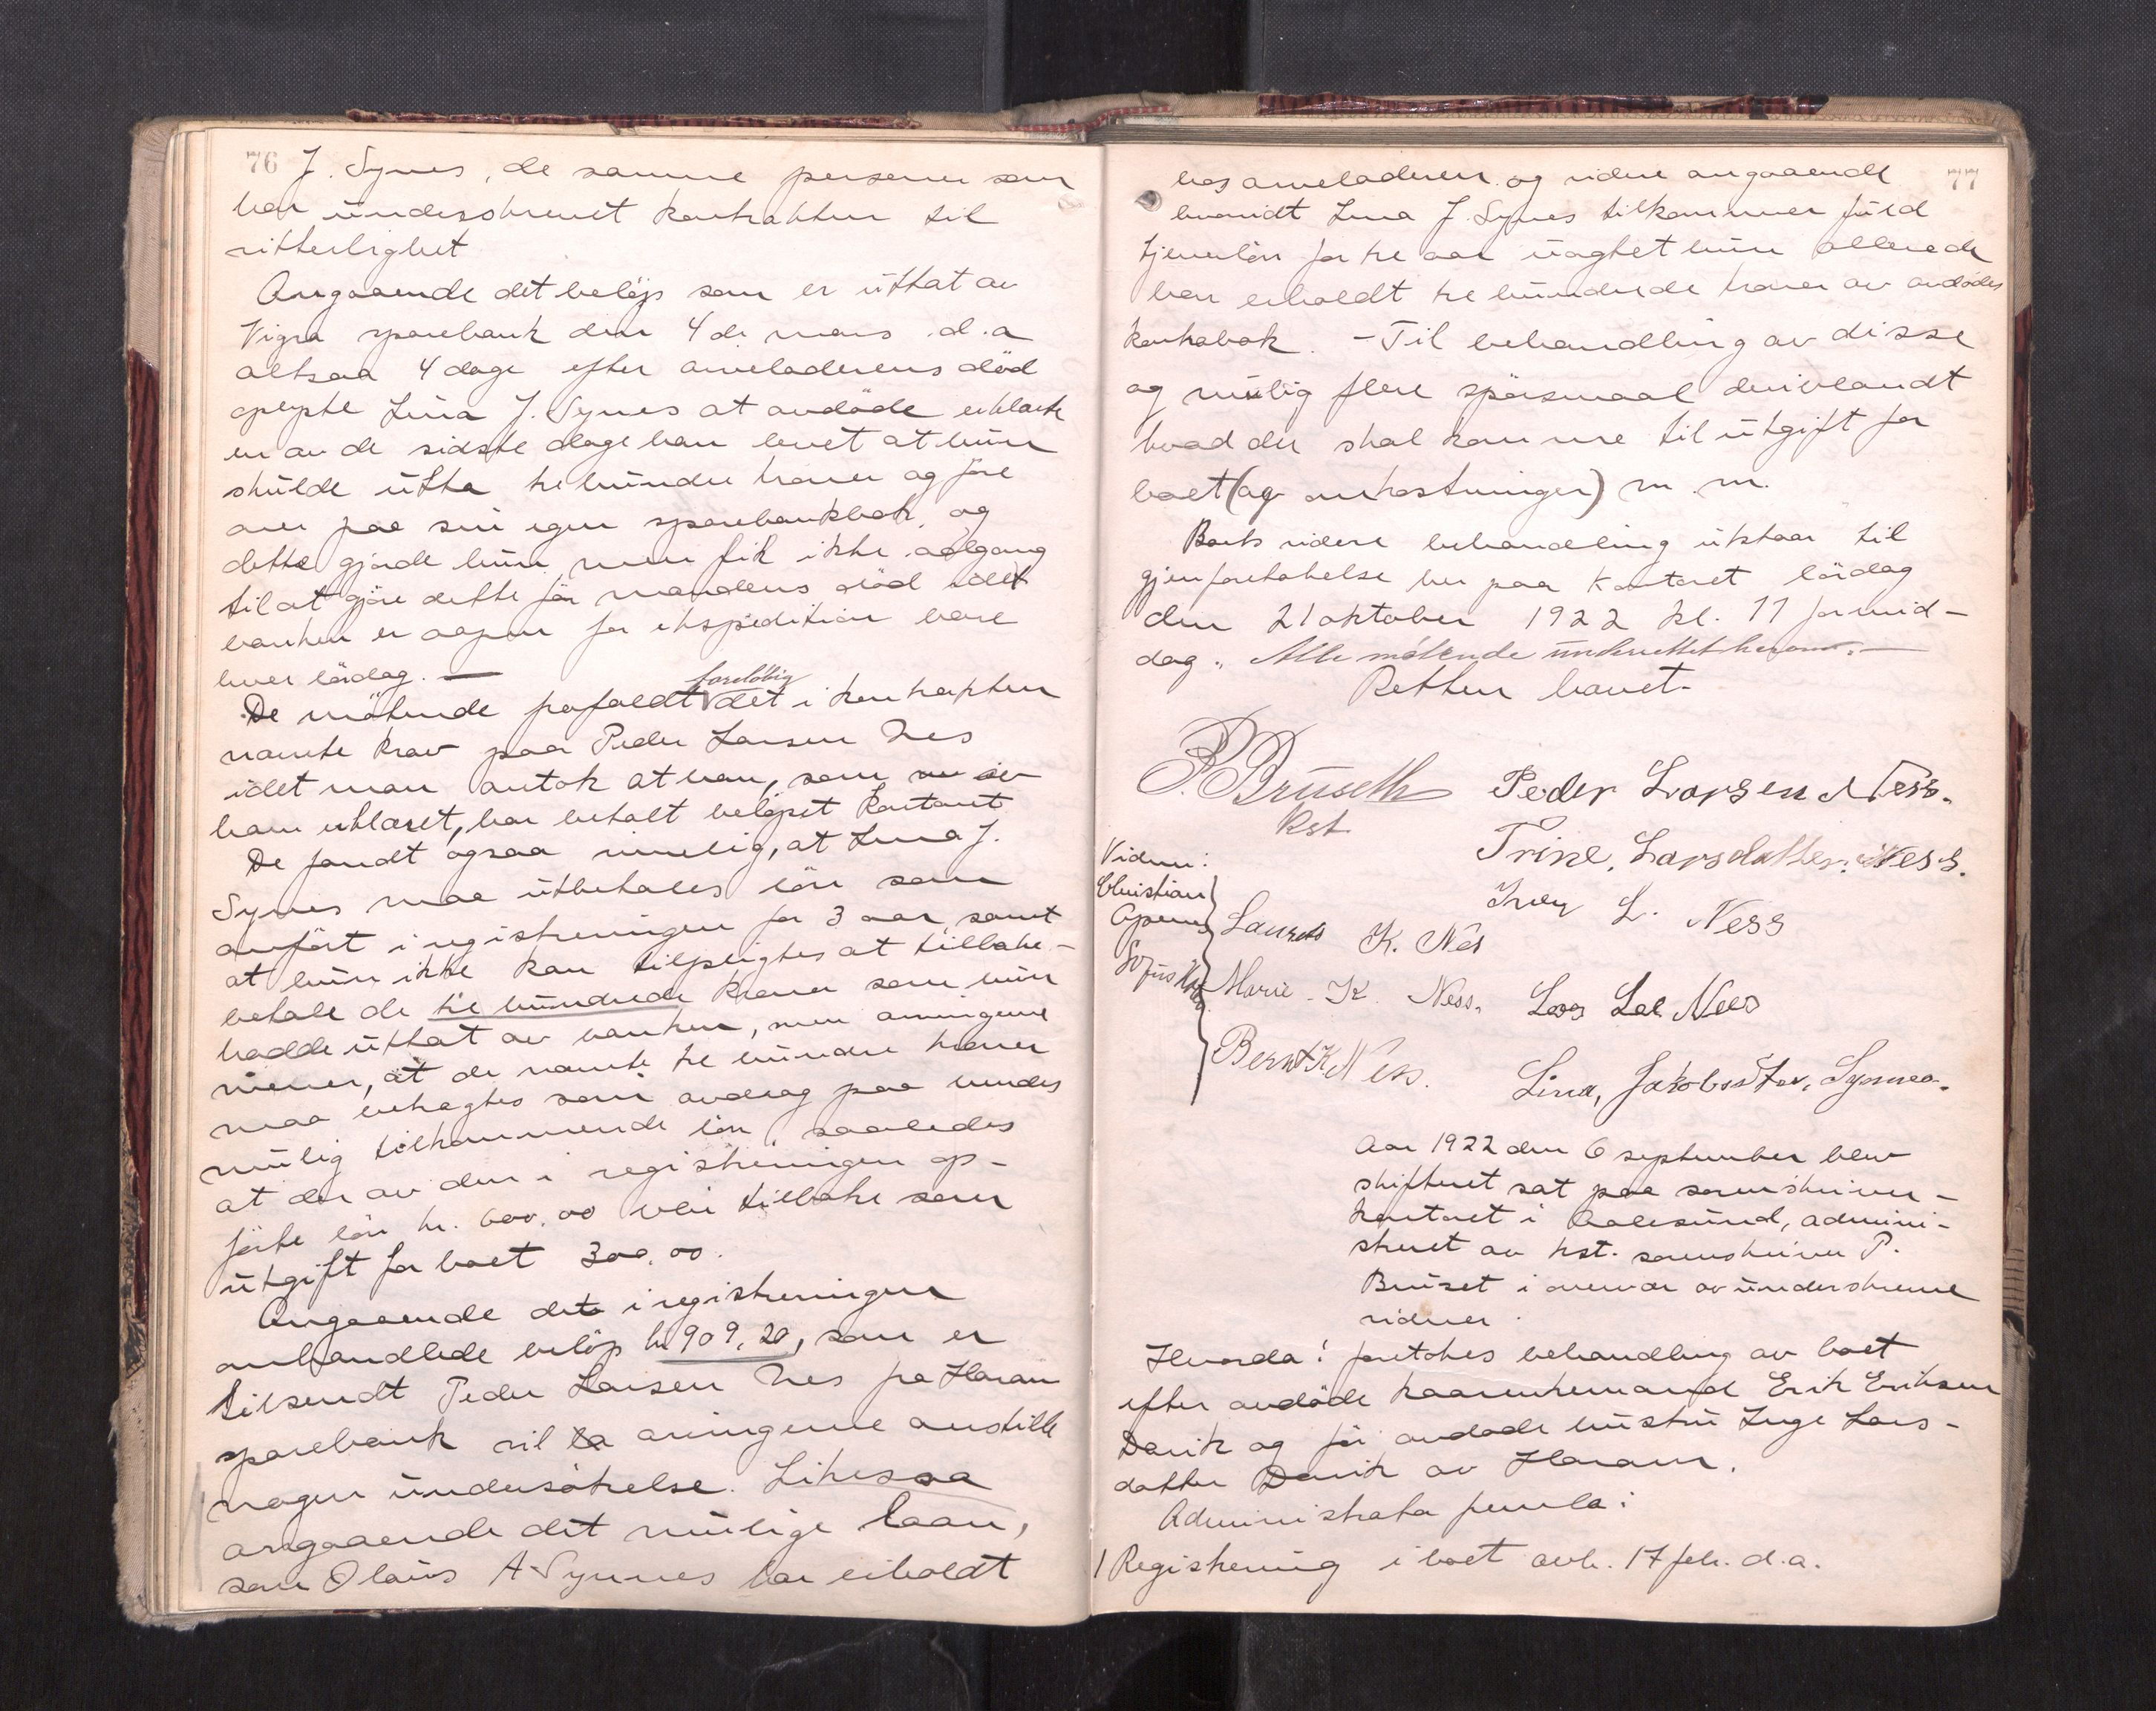 76
J. Synes, de samme personer som
har underskrevet kontrakten til
vitterlighet
Angaaende det beløp som er uttat av
Vigra sparebank den 4de mars d.a
altsaa 4 dage efter arveladerens død
oplyste Lina J. Synes at avdøde erklærte
en av de sidste dage han levet at hun
skulde utta tre hundre kroner og føre
over paa sin egen sparebankbok, og
dette gjorde hun, men fik ikke adgang
til at gjøre dette før mandens død idet
banken er aapen for ekspedition bare
hver lørdag. —
De møtende frafaldt foreløbig det i kontrakten
nævnte krav paa Peder Larsen Nes
idet man antok at han, som av
ham erklæret, har betalt beløpet kontant
De fandt ogsaa rimelig, at Lina J.
Synes maa utbetales løn som
anført i registreringen for 3 aar, samt
at hun ikke kan tilpligtes at tilbake-
betale de tre hundrede kroner som hun
hadde uttat av banken, men arvingerne
mener, at de nævnte tre hundre kroner
maa betragtes som avdrag paa hendes
mulig tilkommende løn, saaledes
at der av den i registreringen op-
førte løn kr. 600,00 blir tilbake som
utgift for boet 300,00.
Angaaende det i registreringen
omhandlede beløp kr 909,20, som er
tilsendt Peder Larsen Nes fra Haram
sparebank vil arvingerne anstille
nogen undersøkelse. Likesaa
angaaende det mulige laan,
som Olaus A Synnes har erholdt
77
hos arveladeren og videre angaaende
hvorvidt Lina J. Synes tilkommer fuld
tjenerløn for tre aar uagtet hun allerede
har erholdt tre hundrede kroner av avdødes
kontrabok. – Til behandling av disse
og mulig flere spørsmaal deriblandt
hvad der skal komme til utgift for
boet (og omkostninger) m. m.
Boets videre behandling utstaar til
gjenforetakelse her paa kontoret lørdag
den 21 oktober 1922 kl. 11 formid-
dag. Alle møtende underrettet herom. —
Retten hævet.
P. Bruseth
kst
Peder Larsen Ness.
Trine, Larsdatter. Ness.
Iver L. Ness
Vidner:
Christian
Laurits K. Nes
Marie K. Ness.
Lars Lal Ness
Bernt K Ness.
Lina, Jakobsdter, Synnes.
Aar 1922 den 6 september blev
skifteret sat paa sorenskriver-
kontoret i Aalesund, admini-
streret av kst. sorenskriver P.
Bruset i overvær av underskrevne
vidner.
Hvorda: foretokes behandling av boet
efter avdøde kaarenkemand Erik Eriksen
Davik og før avdøde hustru Inge Lars-
datter Davik av Haram.
Administrator fremla:
1 Registrering i boet avh. 17 febr. d.a.